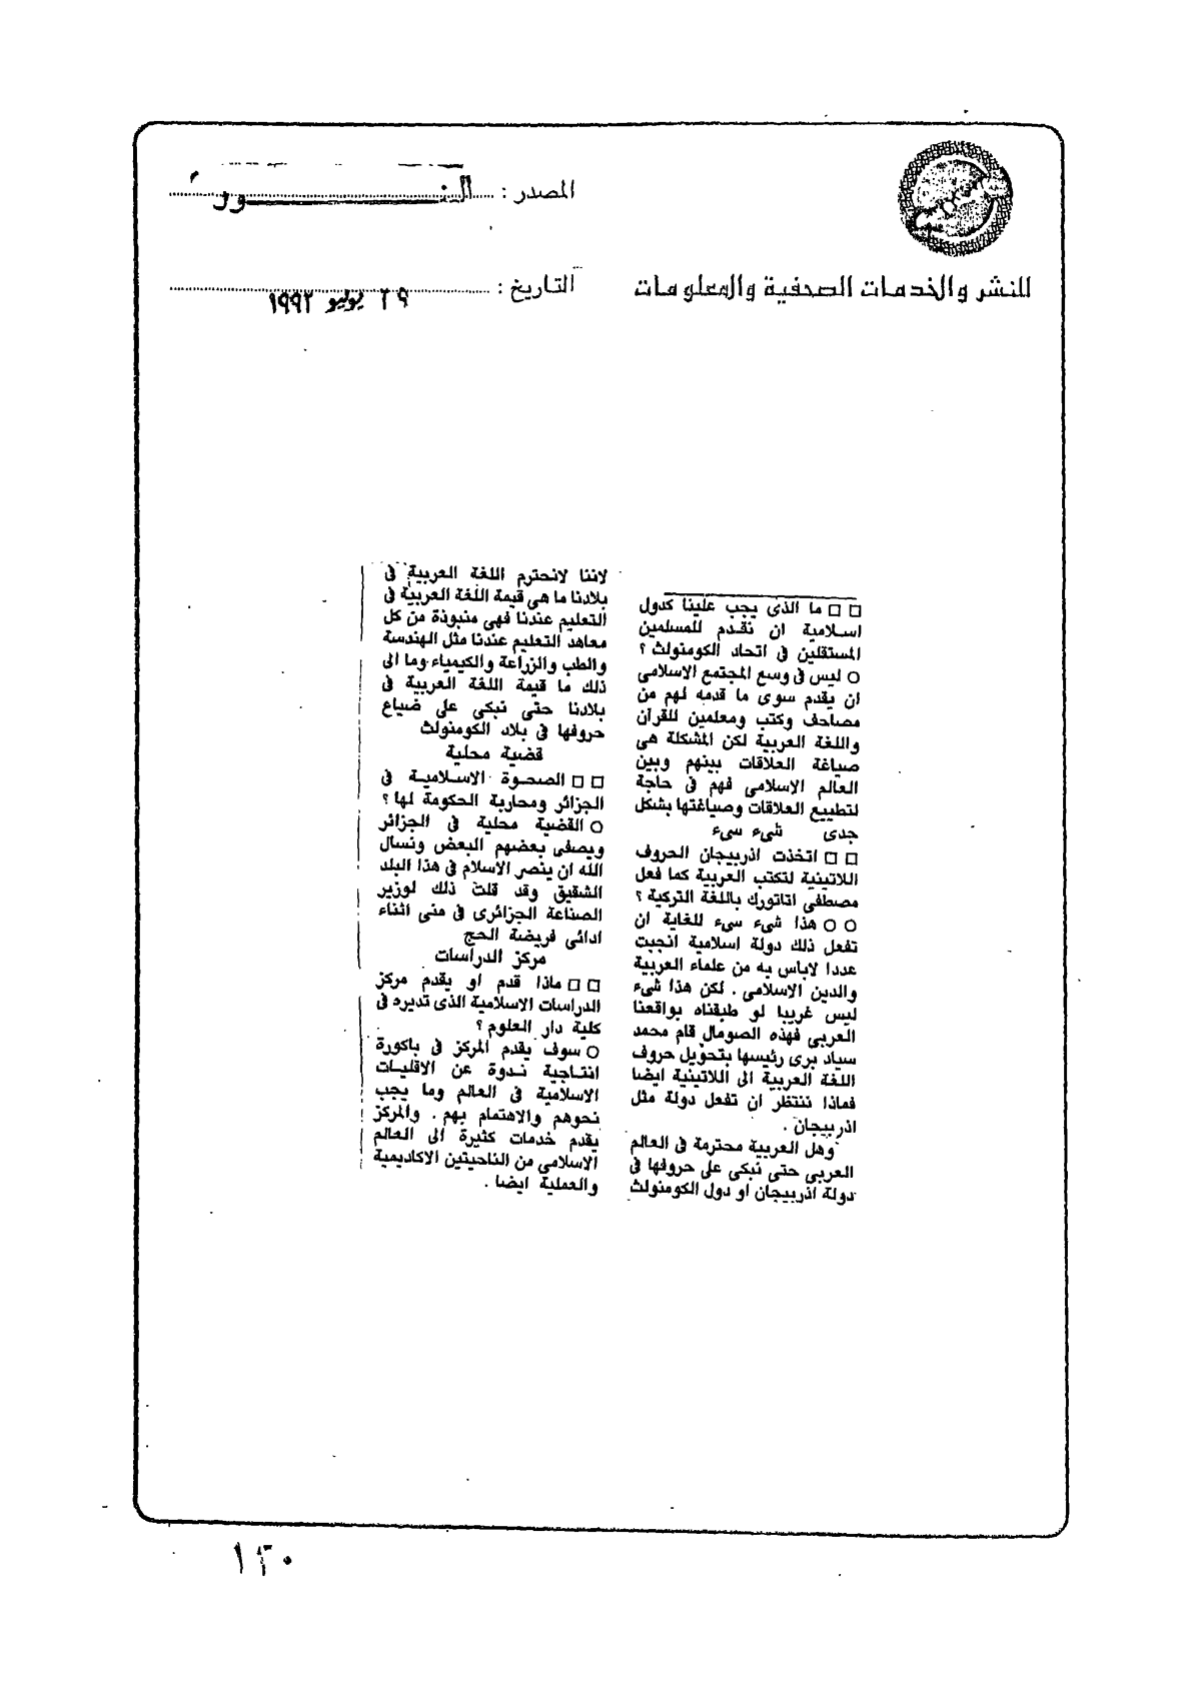 المصدر : النـــــور
للنشر والخدمات الصحفية والمعلومات
التاريخ : ٢٩ يوليو ١٩٩٢
□ □ ما الذى يجب علينا كدول
اسلامية ان نقدم للمسلمين
المستقلين فى اتحاد الكومنولث ؟
○ ليس فى وسع المجتمع الاسلامى
ان يقدم سوى ما قدمه لهم من
مصاحف وكتب ومعلمين للقرآن
واللغة العربية لكن المشكلة هى
صياغة العلاقات بينهم وبين
العالم الاسلامى فهم فى حاجة
لتطبيع العلاقات وصياغتها بشكل
جدى شىء سىء
□ □ اتخذت اذربيجان الحروف
اللاتينية لتكتب العربية كما فعل
مصطفى اتاتورك باللغة التركية ؟
○ ○ هذا شىء سىء للغاية ان
تفعل ذلك دولة اسلامية انجبت
عددا لاباس به من علماء العربية
والدين الاسلامى . لكن هذا شىء
ليس غريبا لو طبقناه بواقعنا
العربى فهذه الصومال قام محمد
سياد برى رئيسها بتحويل حروف
اللغة العربية الى اللاتينية ايضا
فماذا ننتظر ان تفعل دولة مثل
اذربيجان .
وهل العربية محترمة فى العالم
العربى حتى نبكى على حروفها فى
دولة اذربيجان او دول الكومنولث
لاننا لانحترم اللغة العربية فى
بلادنا ما هى قيمة اللغة العربية فى
التعليم عندنا فهى منبوذة من كل
معاهد التعليم عندنا مثل الهندسة
والطب والزراعة والكيمياء وما الى
ذلك ما قيمة اللغة العربية فى
بلادنا حتى نبكى على ضياع
حروفها فى بلاد الكومنولث
قضية محلية
□ □ الصحوة الاسلامية فى
الجزائر ومحاربة الحكومة لها ؟
○ القضية محلية فى الجزائر
ويصفى بعضهم البعض ونسال
الله ان ينصر الاسلام فى هذا البلد
الشقيق وقد قلت ذلك لوزير
الصناعة الجزائرى فى منى اثناء
ادائى فريضة الحج
مركز الدراسات
□ □ ماذا قدم او يقدم مركز
الدراسات الاسلامية الذى تديره فى
كلية دار العلوم ؟
○ سوف يقدم المركز فى باكورة
انتاجية ندوة عن الاقليات
الاسلامية فى العالم وما يجب
نحوهم والاهتمام بهم . والمركز
يقدم خدمات كثيرة الى العالم
الاسلامى من الناحيتين الاكاديمية
والعملية ايضا .